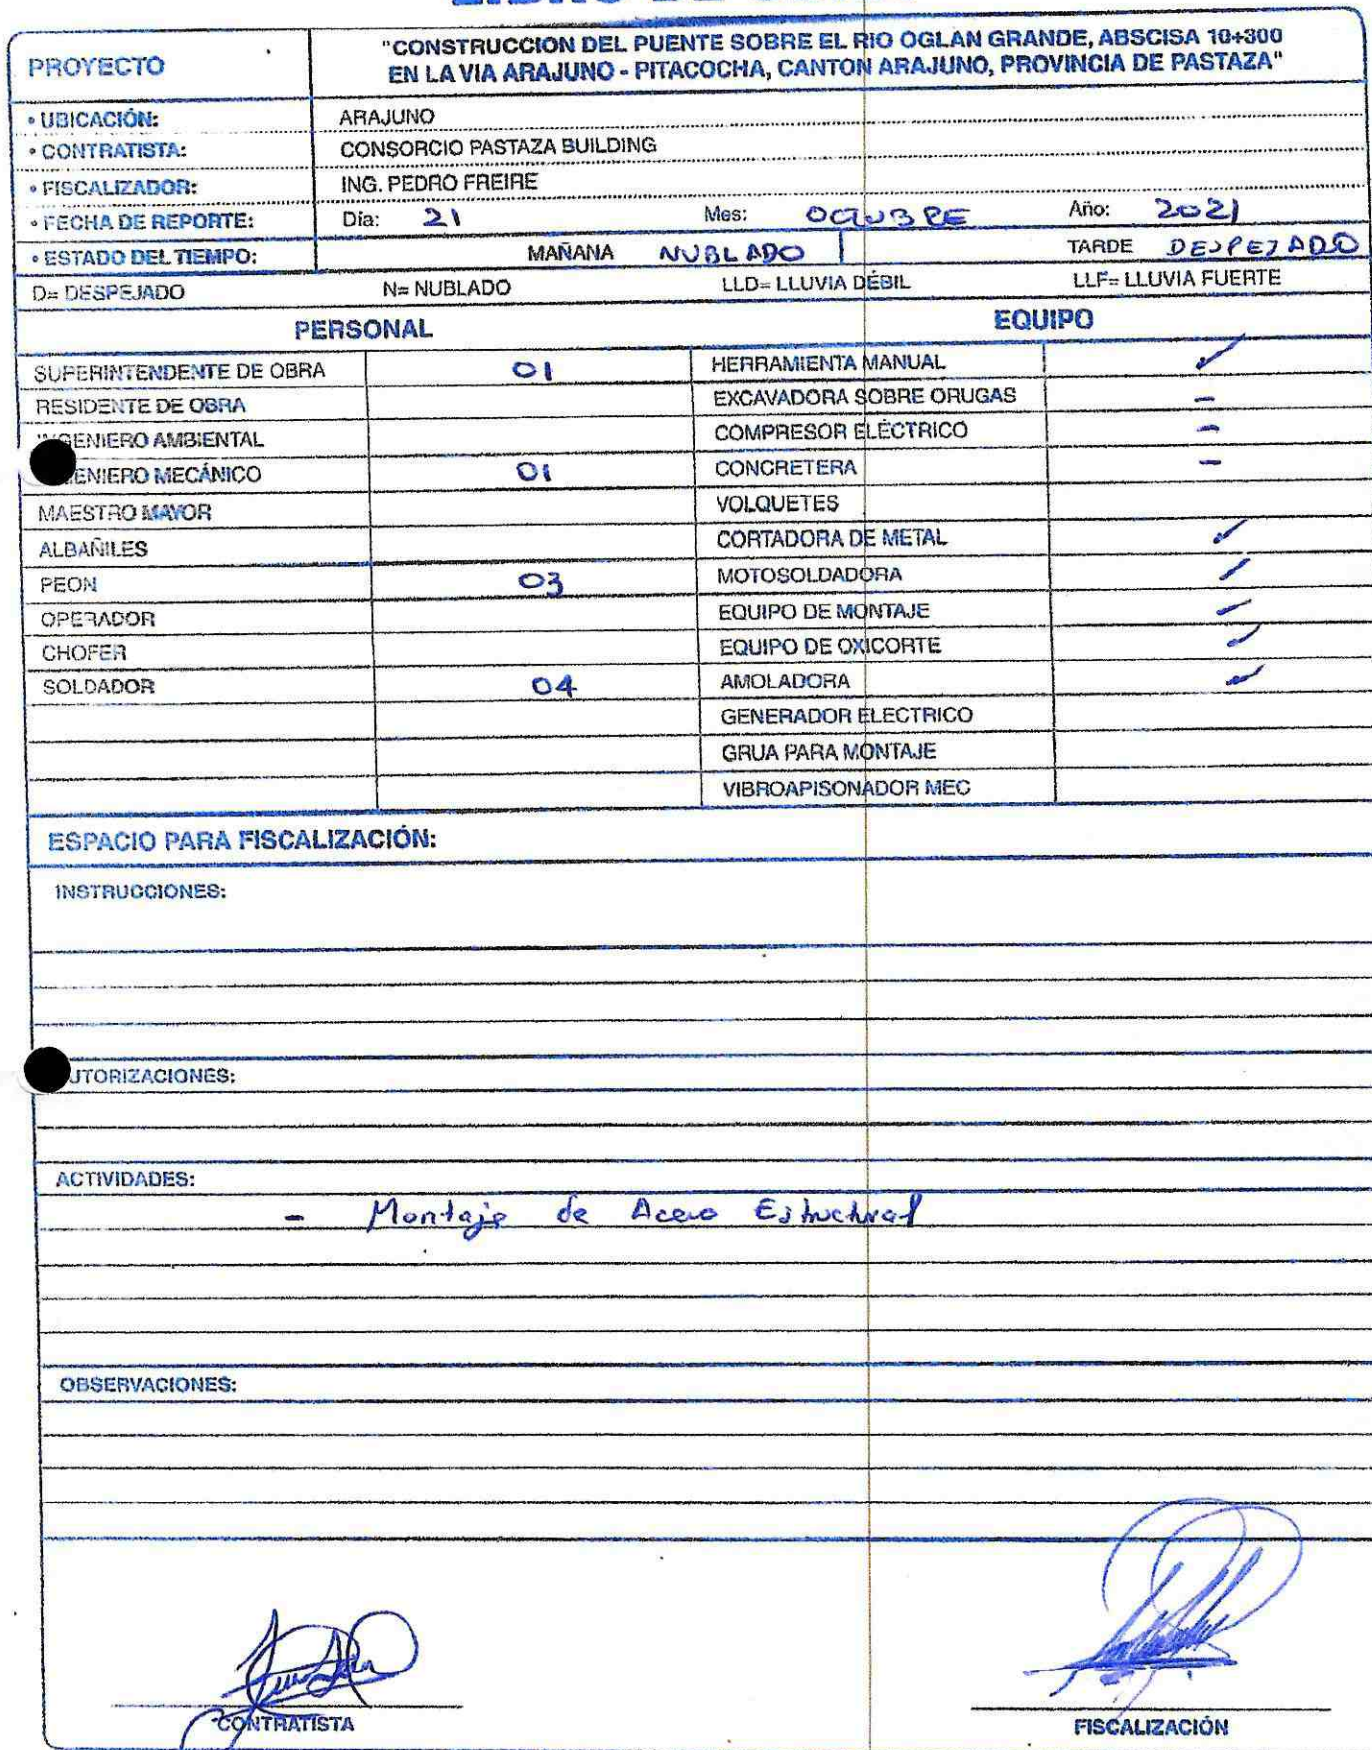 PROYECTO
"CONSTRUCCION DEL PUENTE SOBRE EL RIO OGLAN GRANDE, ABSCISA 10+300
EN LA VIA ARAJUNO - PITACOCHA, CANTON ARAJUNO, PROVINCIA DE PASTAZA"
• UBICACIÓN: ARAJUNO
• CONTRATISTA: CONSORCIO PASTAZA BUILDING
• FISCALIZADOR: ING. PEDRO FREIRE
• FECHA DE REPORTE: Día: 21 Mes: OCTUBRE Año: 2021
• ESTADO DEL TIEMPO: MAÑANA NUBLADO TARDE DESPEJADO
D= DESPEJADO N= NUBLADO LLD= LLUVIA DÉBIL LLF= LLUVIA FUERTE
PERSONAL EQUIPO
SUPERINTENDENTE DE OBRA 01 HERRAMIENTA MANUAL ✓
RESIDENTE DE OBRA EXCAVADORA SOBRE ORUGAS -
INGENIERO AMBIENTAL COMPRESOR ELÉCTRICO -
ENIERO MECÁNICO 01 CONCRETERA -
MAESTRO MAYOR VOLQUETES
ALBAÑILES CORTADORA DE METAL ✓
PEON 03 MOTOSOLDADORA ✓
OPERADOR EQUIPO DE MONTAJE ✓
CHOFER EQUIPO DE OXICORTE ✓
SOLDADOR 04 AMOLADORA ✓
GENERADOR ELECTRICO
GRUA PARA MONTAJE
VIBROAPISONADOR MEC
ESPACIO PARA FISCALIZACIÓN:
INSTRUCCIONES:
UTORIZACIONES:
ACTIVIDADES:
- Montaje de Acero Estructural
OBSERVACIONES:
CONTRATISTA FISCALIZACIÓN